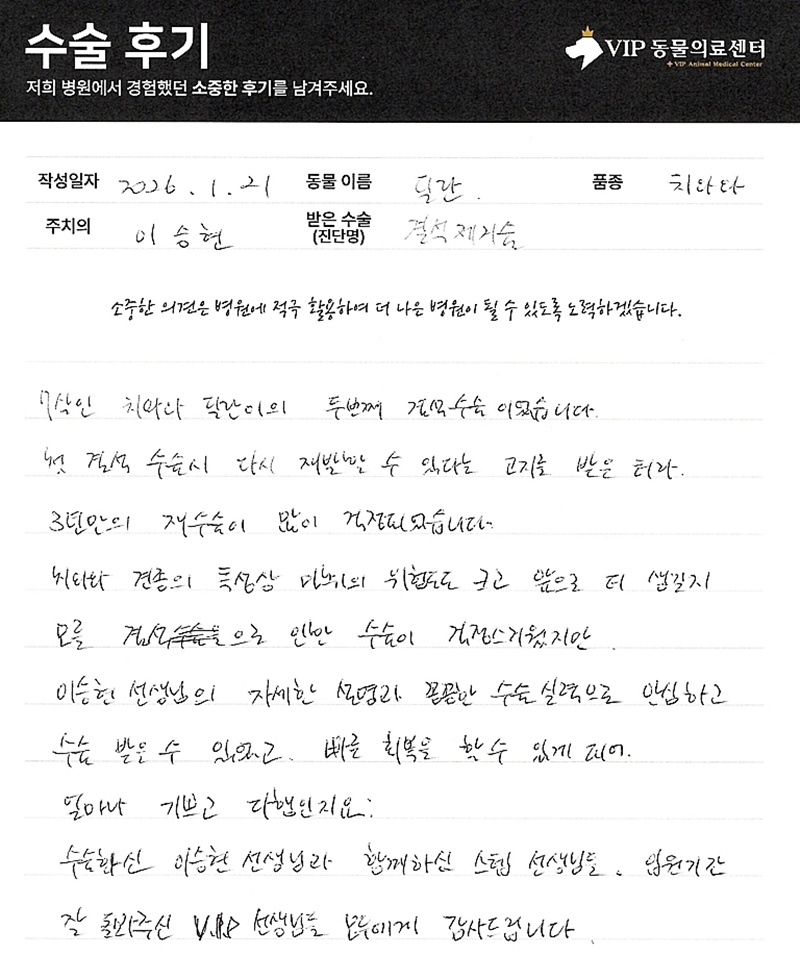 수술 후기
저희 병원에서 경험했던 소중한 후기를 남겨주세요.
VIP 동물의료센터
+ VIP Animal Medical Center
작성일자 2026. 1. 21 동물 이름 달란. 품종 치와와
주치의 이승현 받은 수술 (진단명) 결석제거술
소중한 의견은 병원에 적극 활용하여 더 나은 병원이 될 수 있도록 노력하겠습니다.
7살인 치와와 달란이의 두번째 결석수술이었습니다.
첫 결석 수술시 다시 재발할 수 있다는 고지를 받은 터라.
3년만의 재수술이 많이 걱정되었습니다.
치와와 견종의 특성상 마취의 위험도도 크고 앞으로 더 생길지
모를 결석으로 인한 수술이 걱정스러웠지만.
이승현 선생님의 자세한 설명과 꼼꼼한 수술실력으로 안심하고
수술 받을 수 있었고. 빠른 회복을 할 수 있게 되어.
얼마나 기쁘고 다행인지요.
수술하신 이승현 선생님과 함께하신 스텝 선생님들. 입원기간
잘 돌봐주신 V.I.P 선생님들 모두에게 감사드립니다.